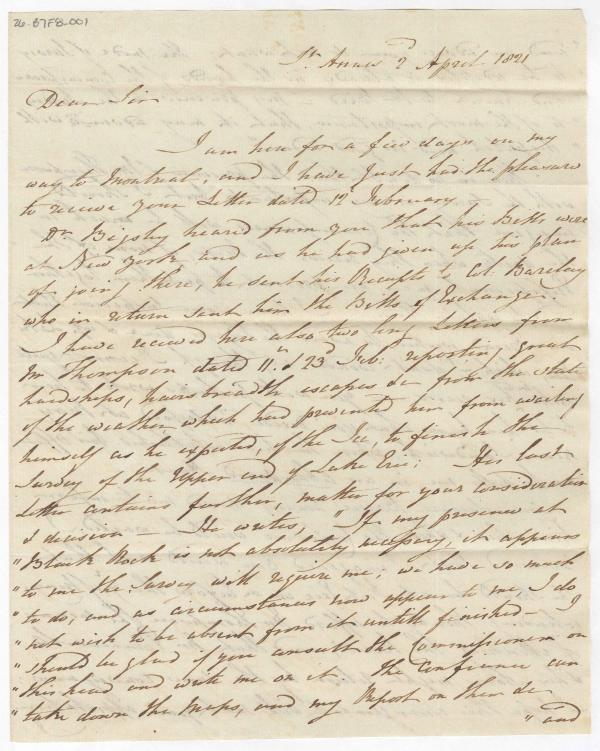 26-B7FB-001
St Annes 2d April 1821
Dear Sir
I am here for a few days, on my
way to Montreal, and I have just had the pleasure
to receive your Letter dated 12 February —
Dr Bigsby heard from you that his Bills were
at New York and as he had given up his plan
of going there, he sent his Receipts to Col. Barclay
who in return sent him the Bills of Exchange.
I have received here also two long Letters from
Mr Thompson dated 11th & 23d Feb: reporting great
hardships, hairsbreadth escapes &c from the state
of the weather which had prevented him from availing
himself as he expected, of the Ice, to finish the
Survey of the Upper end of Lake Erie: His last
Letter contains further, matter for your consideration
& decision — He writes, "If my presence at
"Black Rock is not absolutely necessary, it appears
"to me the Survey will require me; we have so much
"to do, and as circumstances now appear to me, I do
"not wish to be absent from it untill finished — I
"should be glad if you consult the Commissioners on
"this head and write me on it The Conference can
"take down the Maps, and my Report on them &c
"and